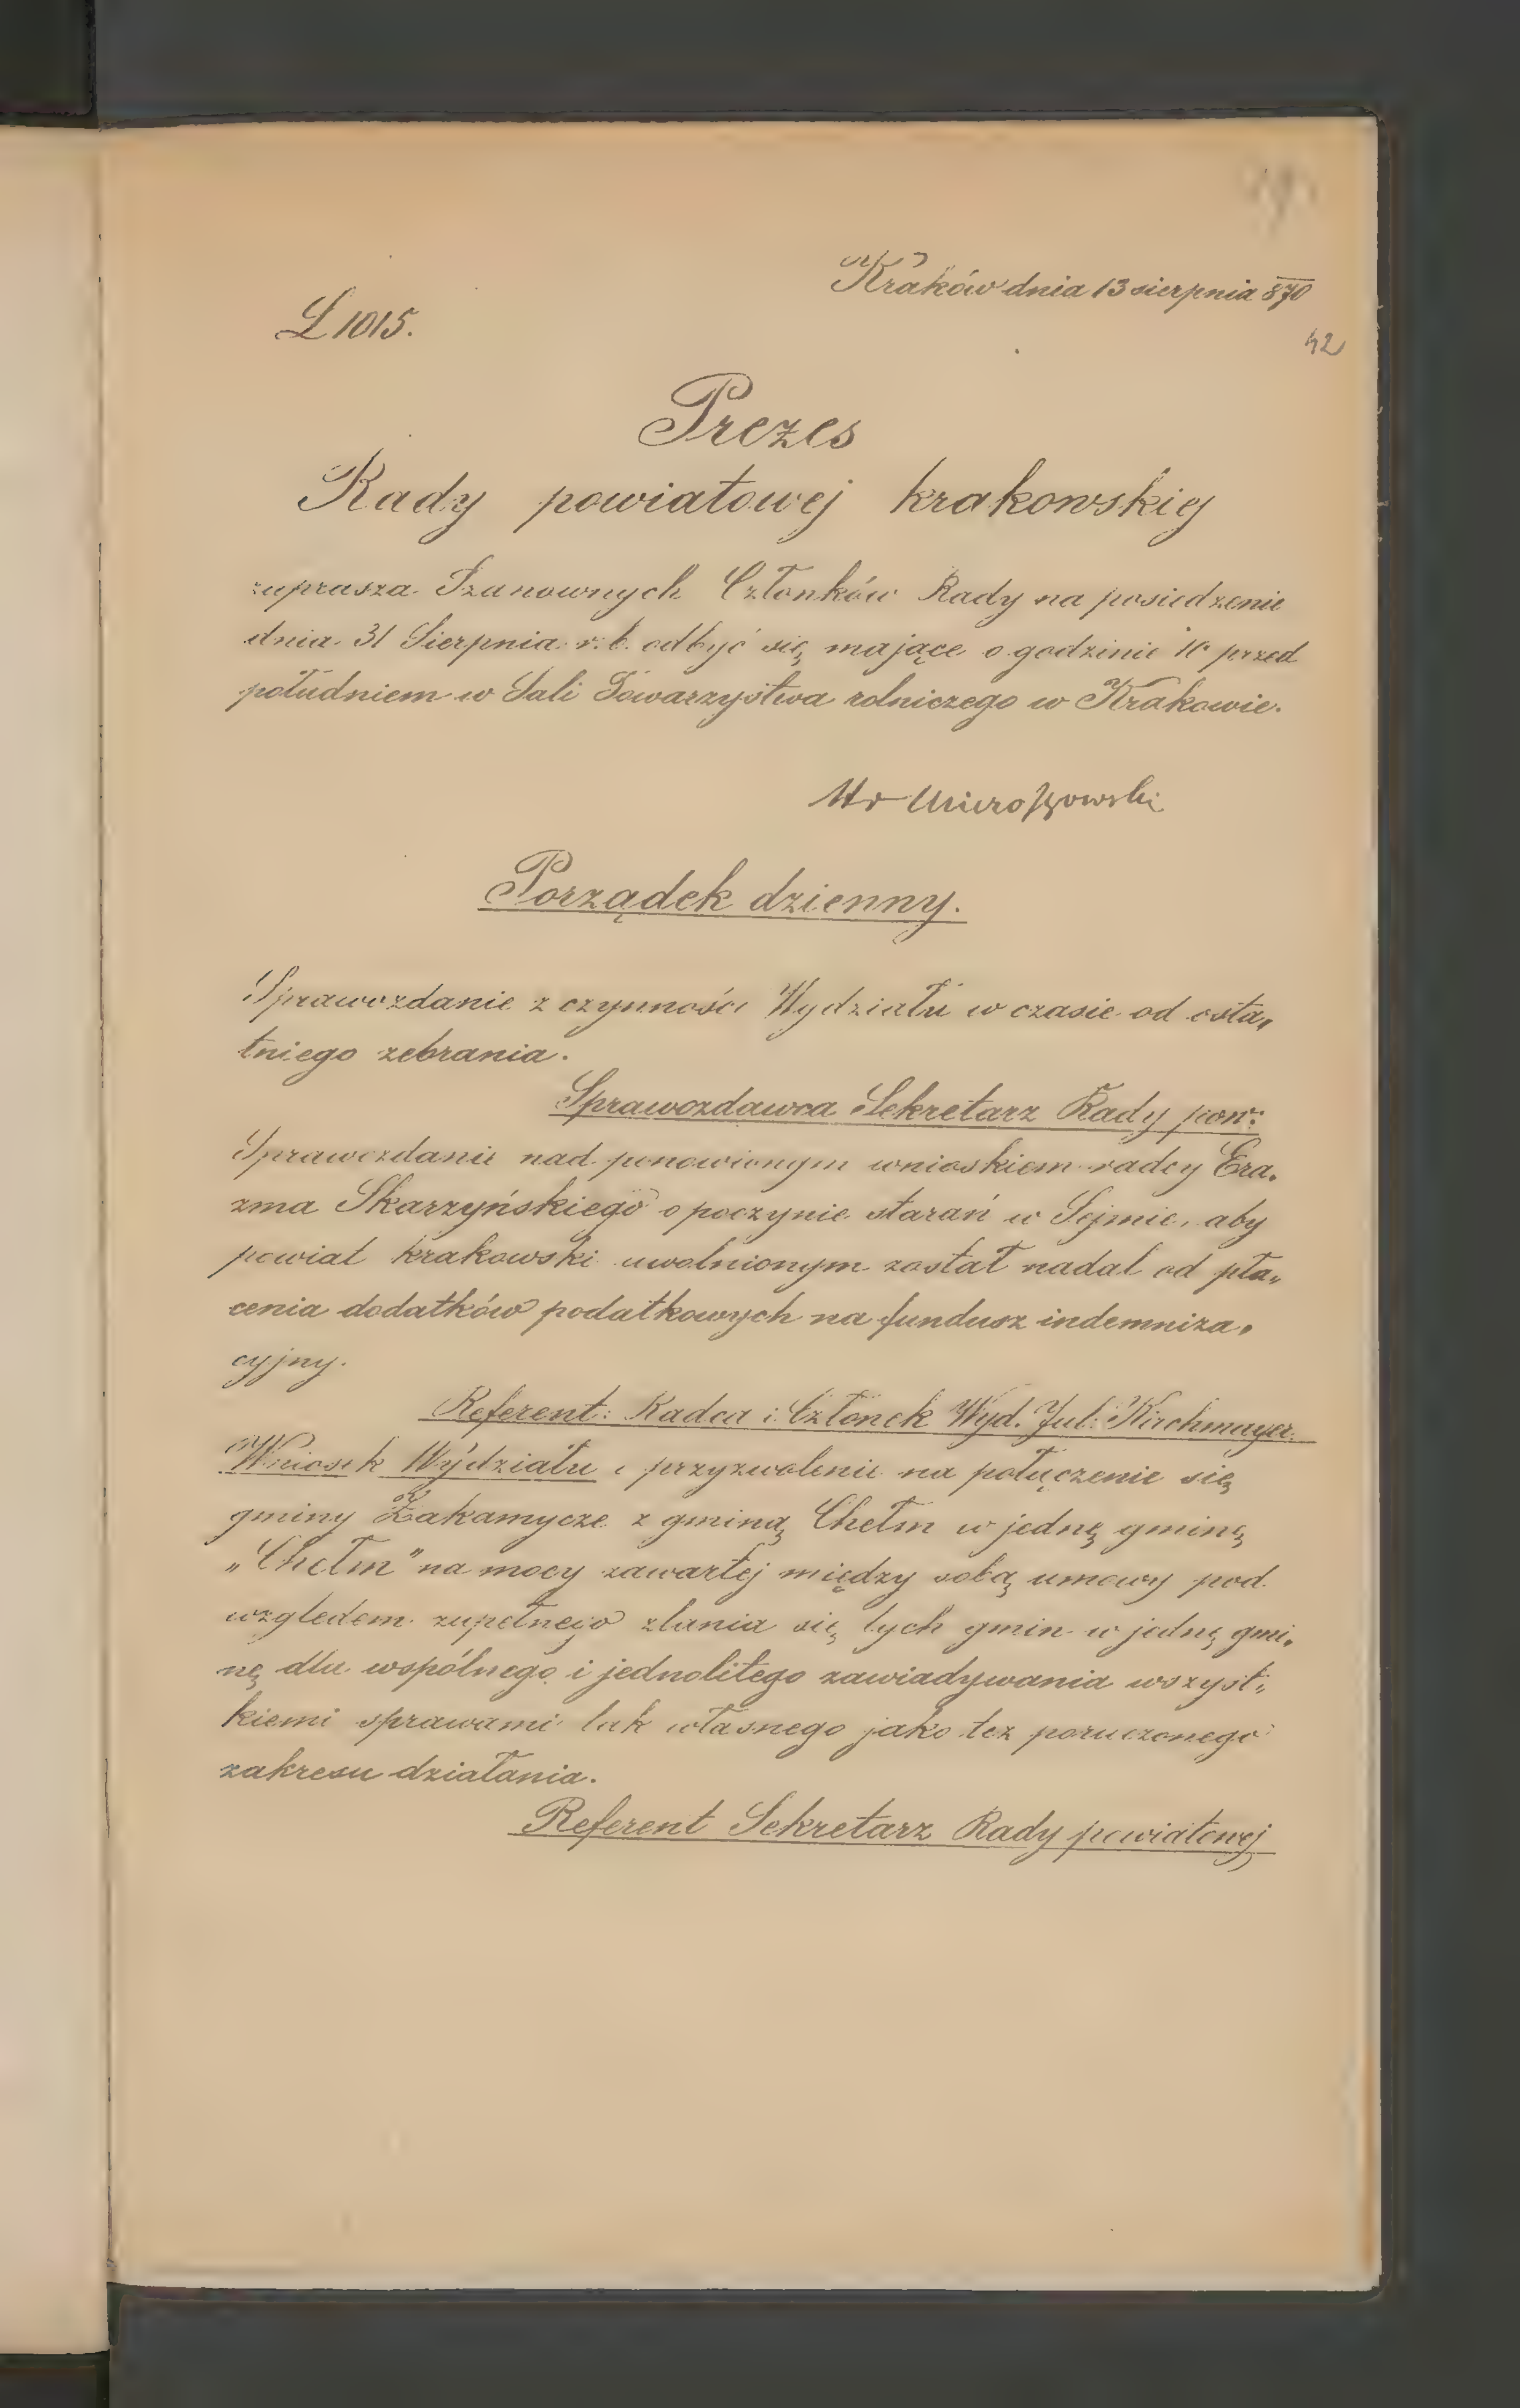 Kraków dnia 13 sierpnia 870
L 1015.
42
Prezes
Rady powiatowej krakowskiej
zaprasza Szanownych Członków Rady na posiedzenie
dnia 31 Sierpnia r. b. odbyć się mające o godzinie 10 przed
południem w Sali Towarzystwa rolniczego w Krakowie.
Mieroszowski
Porządek dzienny.
Sprawozdanie z czynności Wydziału w czasie od osta„
tniego zebrania.
Sprawozdawca Sekretarz Rady pow:
Sprawozdanie nad ponowionym wnioskiem radcy Era„
zma Skarzyńskiego o poczynie starań w Sejmie, aby
powiat krakowski uwolnionym został nadal od pła„
cenia dodatków podatkowych na fundusz indemniza„
cyjny.
Referent: Radca i Członek Wyd. Jul: Kirchmayer.
Wniosek Wydziału o przyzwolenie na połączenie się
gminy Zakamycze z gminą Chełm w jedną gminę
„Chełm" na mocy zawartej między sobą umowy pod
względem zupełnego zlania się tych gmin w jedną gmi„
nę dla wspólnego i jednolitego zawiadywania wszyst„
kiemi sprawami tak własnego jako też poruczonego
zakresu działania.
Referent Sekretarz Rady powiatowej